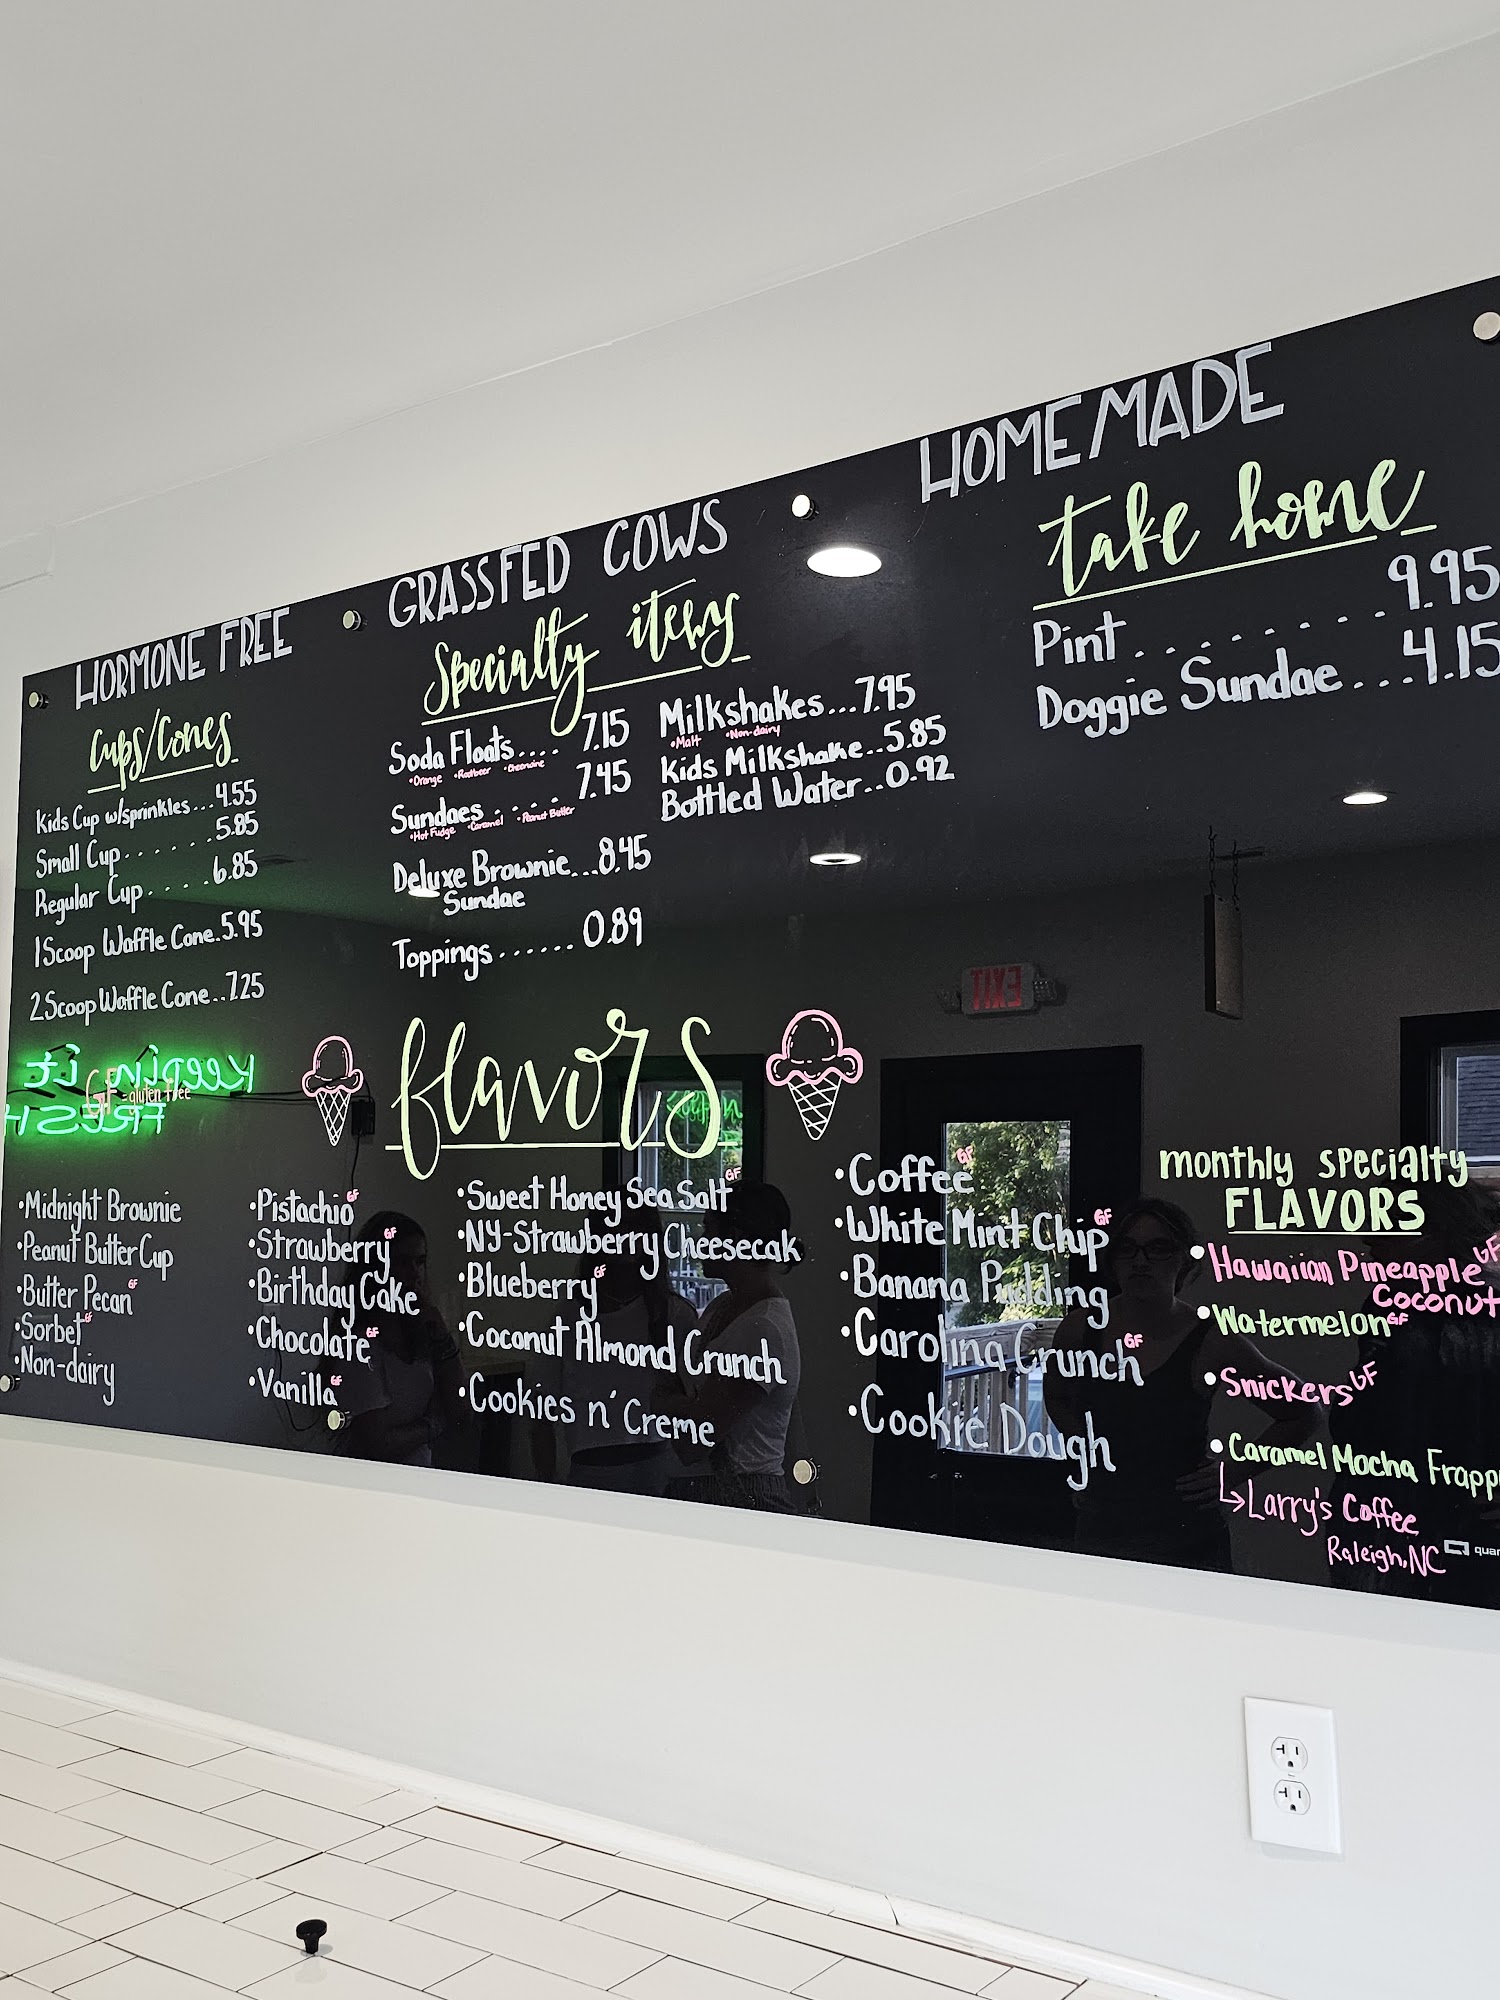 HORMONE FREE
Cups/Cones
Kids Cup w/sprinkles...4.55
Small Cup......5.85
Regular Cup.....6.85
1 Scoop Waffle Cone.5.95
2 Scoop Waffle Cone..7.25
GRASSFED COWS
Specialty items
Soda Floats.... 7.15
•Orange •Rootbeer •Cheerwine
Sundaes..... 7.45
•Hot Fudge •Caramel •Peanut Butter
Deluxe Brownie...8.45
Sundae
Toppings...... 0.89
Milkshakes...7.95
•Malt •Non-dairy
Kids Milkshake..5.85
Bottled Water..0.92
HOMEMADE
take home
Pint........9.95
Doggie Sundae...4.15
Keepin it
FRESH
GF - gluten free
flavors
•Midnight Brownie
•Peanut Butter Cup
•Butter Pecan GF
•Sorbet GF
•Non-dairy
•Pistachio GF
•Strawberry GF
•Birthday Cake
•Chocolate GF
•Vanilla GF
•Sweet Honey Sea Salt GF
•NY-Strawberry Cheesecak
•Blueberry GF
•Coconut Almond Crunch
•Cookies n' Creme
•Coffee GF
•White Mint Chip GF
•Banana Pudding
•Carolina Crunch GF
•Cookie Dough
monthly specialty
FLAVORS
•Hawaiian Pineapple GF
Coconut
•Watermelon GF
•Snickers GF
•Caramel Mocha Frapp
↳Larry's Coffee
Raleigh, NC
EXIT